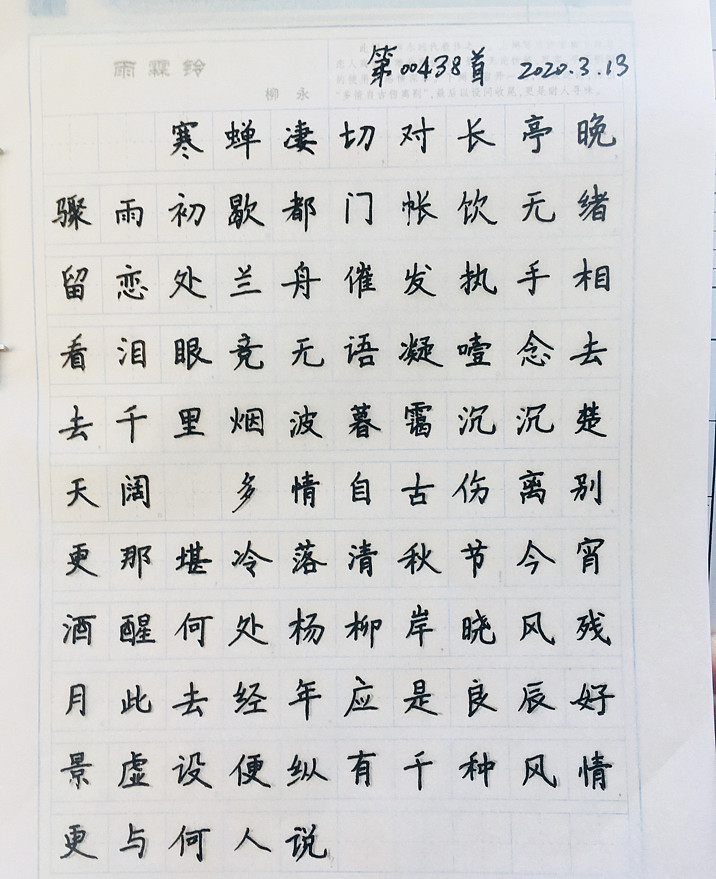 第00438首 2020.3.13
雨霖铃
柳永
寒蝉凄切对长亭晚
骤雨初歇都门帐饮无绪
留恋处兰舟催发执手相
看泪眼竞无语凝噎念去
去千里烟波暮霭沉沉楚
天阔 多情自古伤离别
更那堪冷落清秋节今宵
酒醒何处杨柳岸晓风残
月此去经年应是良辰好
景虚设便纵有千种风情
更与何人说